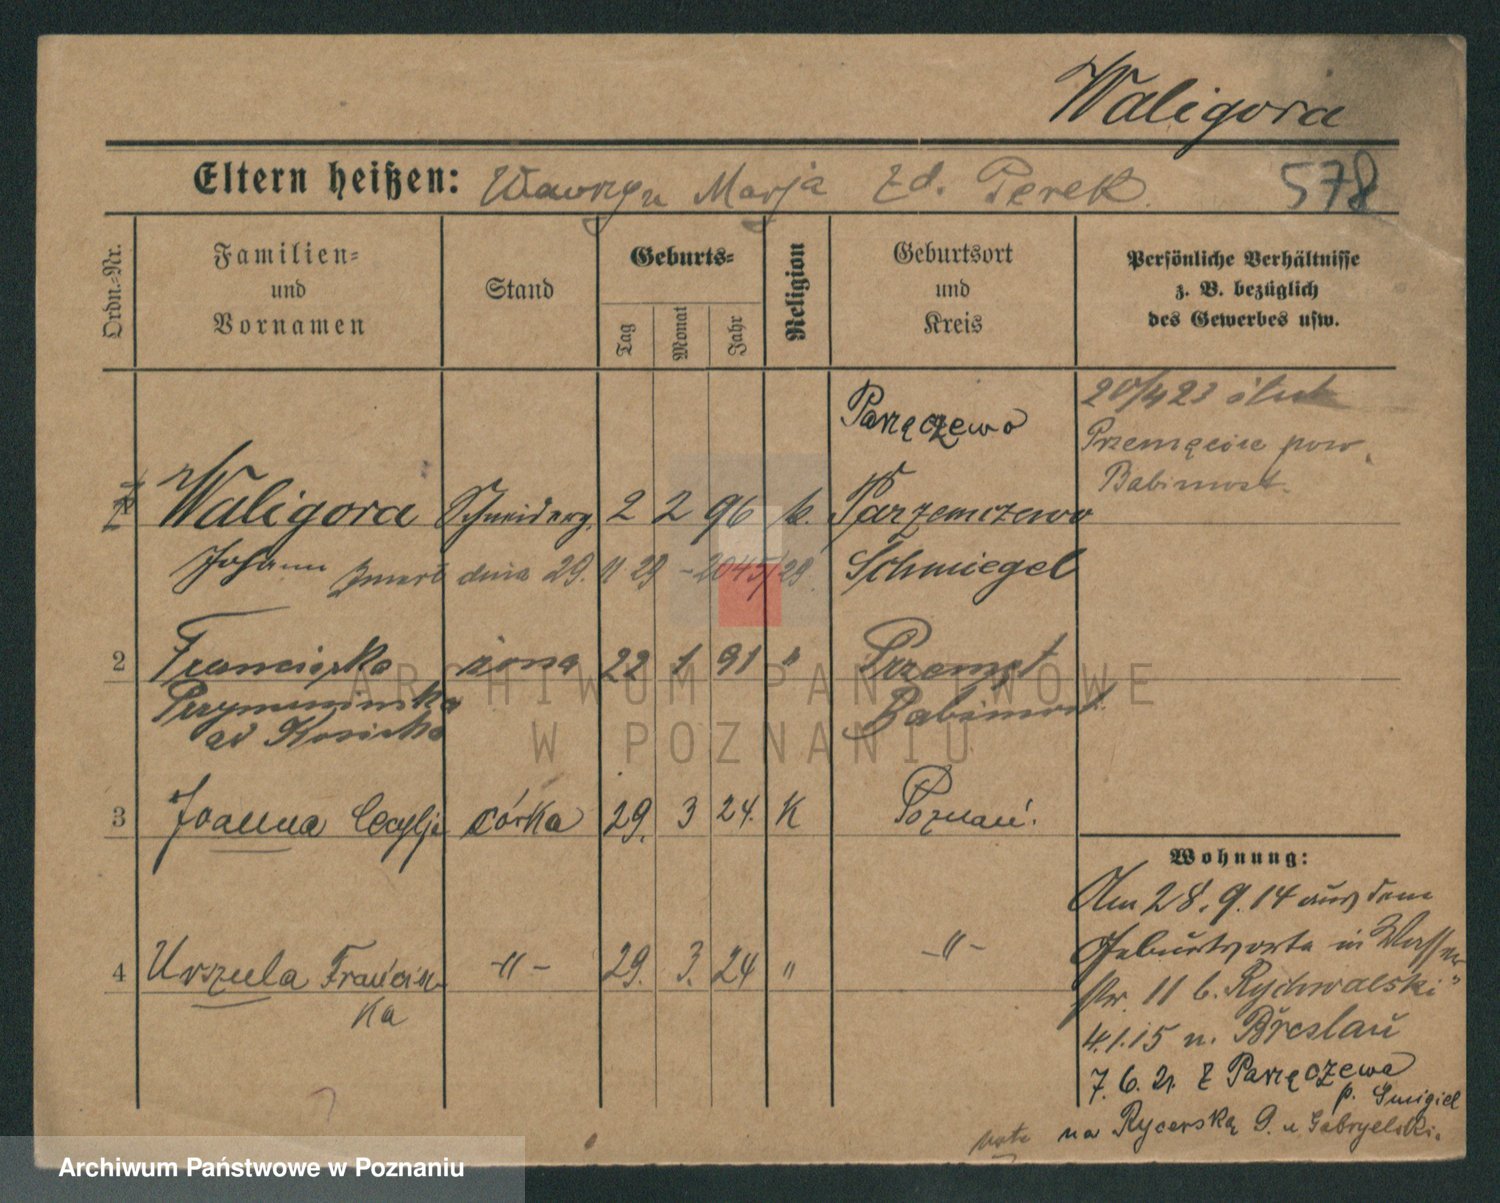 Waligora
Eltern heißen: Wawrzyn Marja zd. Perek 578
Ordn.-Nr.
Familien- und Vornamen
Stand
Geburts-
Tag
Monat
Jahr
Religion
Geburtsort und Kreis
Persönliche Verhältnisse
z. B. bezüglich
des Gewerbes usw.
20/4 23 ślub
Przemęcie pow.
Babimost.
Parzęczewo
Waligora Schneiderg. 2 2 96 k. Parzenczewo
Johann zmarł dnia 29. 11 29 - 2045/29. Schmiegel
2 Franciszka żona 22 1 91 " Przemęt
Babimost.
3 Joanna Cecylja córka 29. 3 24. K Poznań.
4 Urszula Francisz- -"- 29. 3. 24 " -"-
ka
Wohnung:
Am 28.9.14 aus dem
Geburtsorte in Wasser
str. 11 b. Rychwalski"
4.1.15 n. Breslau
7.6.21. z Parzęczewa
p. Śmigiel
na Rycerską 9. u Gabryelski.
ARCHIWUM PAŃSTWOWE
W POZNANIU
Archiwum Państwowe w Poznaniu